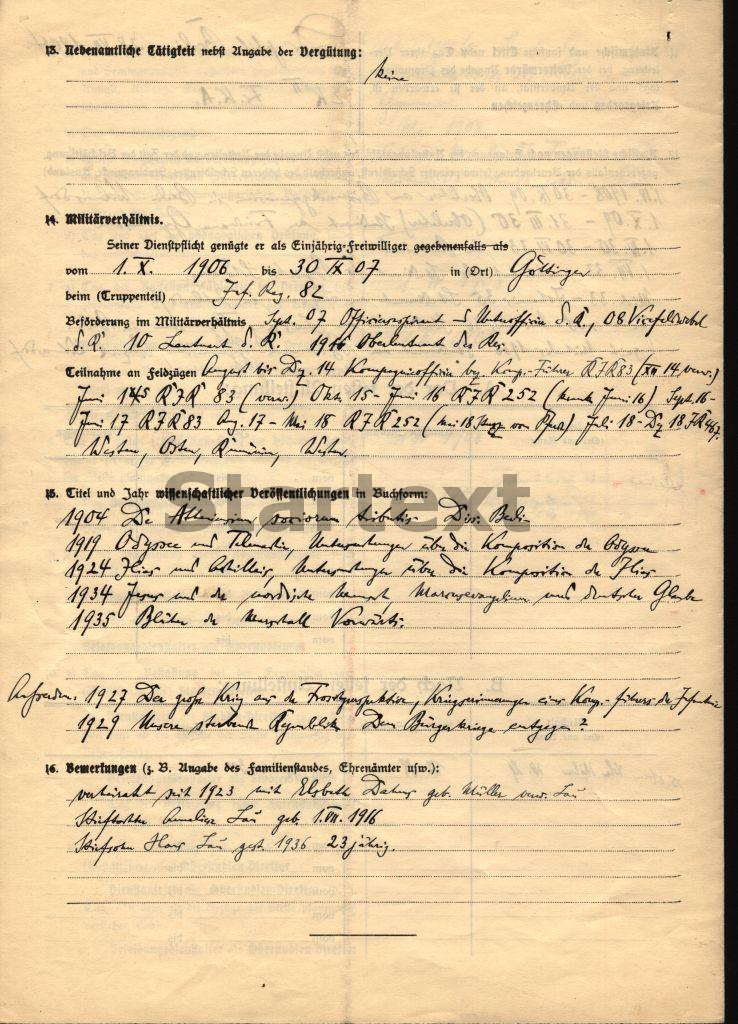 13. Nebenamtliche Tätigkeit nebst Angabe der Vergütung:
keine
14. Militärverhältnis.
Seiner Dienstpflicht genügte er als Einjährig-Freiwilliger gegebenenfalls als
vom 1. X. 1906 bis 30 IX 07 in (Ort) Göttingen
beim (Truppenteil) Inf. Reg. 82
Beförderung im Militärverhältnis Sept. 07 Offiziersaspirant u Unteroffizier d. R., 08 Vizefeldwebel
d. R. 10 Leutnant d. R. 1916 Oberleutnant der Res.
Teilnahme an Feldzügen August bis Dez. 14 Kompagnieoffizier bzw. Komp.-Führer RJR 83 (XII 14 verw.)
Juni 15 RJR 83 (verw.) Okt. 15 - Juni 16 RJR 252 (krank Juni 16) Sept. 16 -
Juni 17 RJR 83 Aug. 17 - Mai 18 RJR 252 (Mai 18 vom Pferd) Juli 18 - Dez 18 JR 467.
Westen, Osten, Rumänien, Westen.
Startext
15. Titel und Jahr wissenschaftlicher Veröffentlichungen in Buchform:
1904 De Atheniensium sociorum tributis Diss. Berlin
1919 Odyssee und Telemachie, Untersuchungen über die Komposition der Odyssee
1924 Ilias und Achilleis, Untersuchungen über die Komposition der Ilias
1934 Jesus und der nordische Mensch, Marcusevangelium und deutscher Glaube
1935 Blüten der Vorwärts.
Ausserdem: 1927 Der große Krieg aus der Froschperspektive, Kriegserinnerungen eines Komp.-führers der Infanterie
1929 Unsere sterbende Republik. Dem Bürgerkriege entgegen?
16. Bemerkungen (z. B. Angabe des Familienstandes, Ehrenämter usw.):
verheiratet seit 1923 mit Elsbeth geb. Müller verw. Lau
Stieftochter Annelise Lau geb. 1. VII. 1916
Stiefsohn Hans Lau gest 1936 23 jährig.